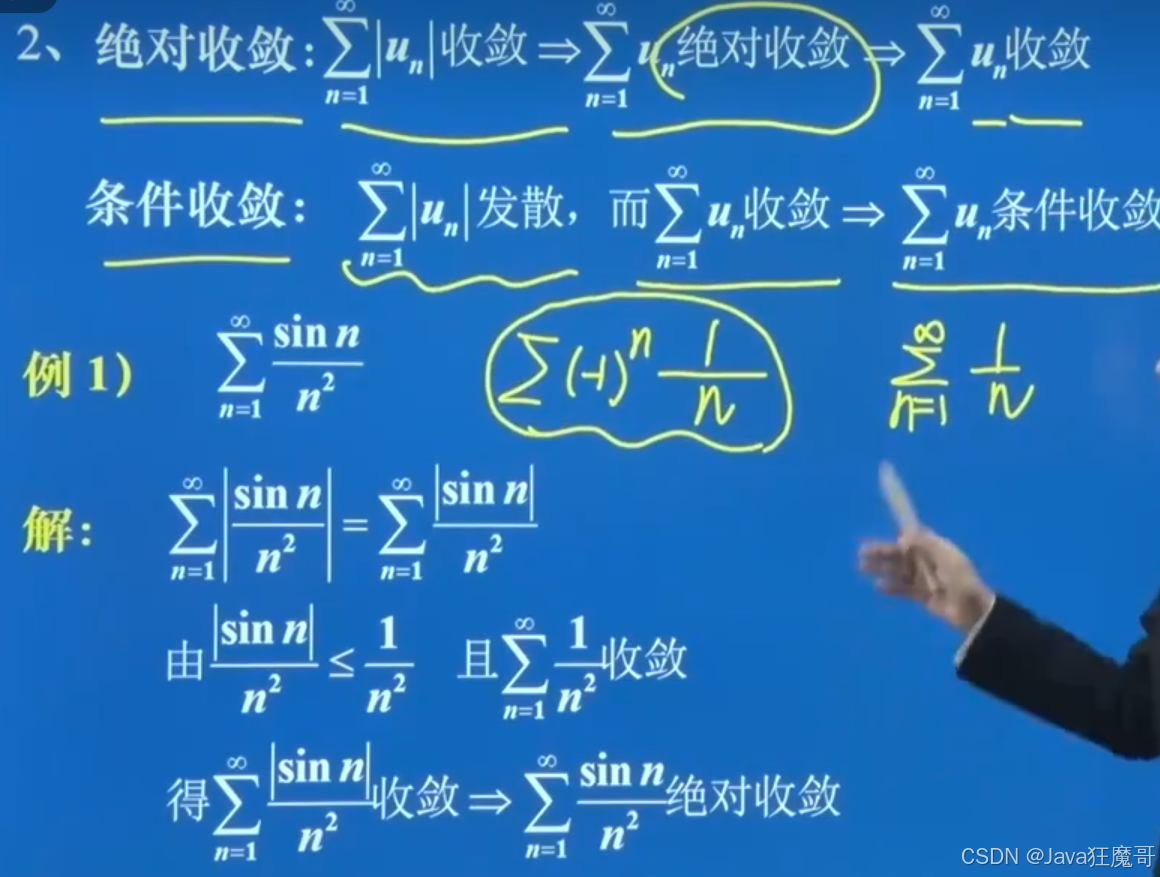 2、绝对收敛:∑_{n=1}^{∞}|u_n|收敛⇒∑_{n=1}^{∞}u_n绝对收敛⇒∑_{n=1}^{∞}u_n收敛
条件收敛: ∑_{n=1}^{∞}|u_n|发散，而∑_{n=1}^{∞}u_n收敛⇒∑_{n=1}^{∞}u_n条件收敛
例1) ∑_{n=1}^{∞} sin n / n² ∑(-1)^n 1/n ∑_{n=1}^{∞} 1/n
解: ∑_{n=1}^{∞}|sin n / n²| = ∑_{n=1}^{∞} |sin n| / n²
由 |sin n| / n² ≤ 1 / n² 且∑_{n=1}^{∞} 1 / n² 收敛
得∑_{n=1}^{∞} |sin n| / n² 收敛⇒∑_{n=1}^{∞} sin n / n² 绝对收敛
CSDN @Java狂魔哥